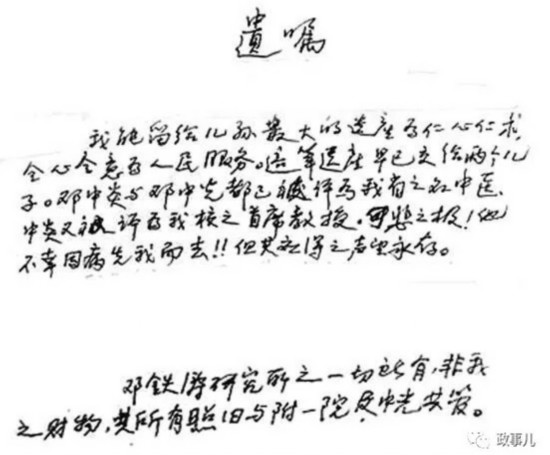 遺嘱
我能留给儿孙最大的遗产为仁心仁术,
全心全意为人民服务。这笔遗产早已交给两个儿
子。邓中炎与邓中光都已被评为我省之名中医,
中炎又被评为我校之首席教授,可悲之极!他
不幸因病先我而去!!但其所得之声望永存。
邓铁涛研究所之一切所有,非我
之财物,其所有照旧与附一院及中光共管。
政事儿